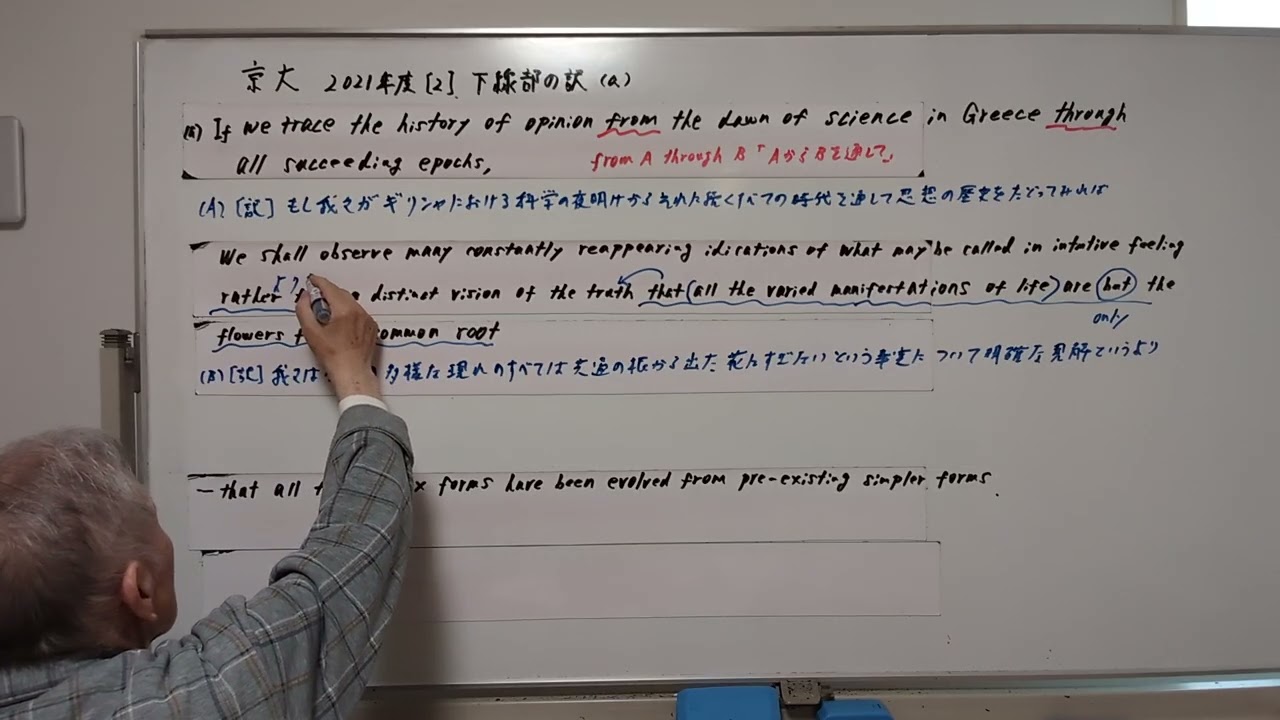 京大 2021年度[2] 下線部の訳 (a)
(a) If we trace the history of opinion from the dawn of science in Greece through
all succeeding epochs,
from A through B「AからBを通して」
(A)[訳] もし我々がギリシャにおける科学の夜明けからそれに続くすべての時代を通して思想の歴史をたどってみれば
We shall observe many constantly reappearing idications of what may be called in intutive feeling
rather distinct vision of the truth that (all the varied manifestations of life) are but the
only
flowers common root
(B)[訳] 我々は 多様な現れのすべては共通の根から出た花にすぎないという事実について明確な見解というより
- that all forms have been evolved from pre-existing simpler forms.